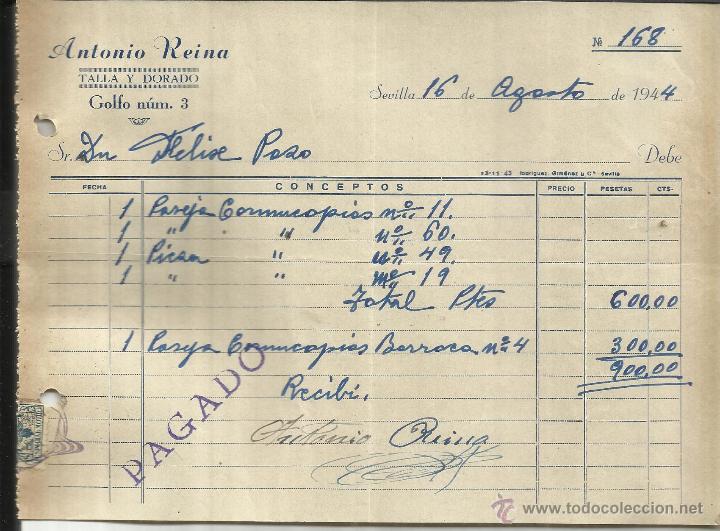 Antonio Reina
TALLA Y DORADO
Golfo núm. 3
№ 168
Sevilla 16 de Agosto de 1944
Sr. Dn Felise Poso Debe
13-11-43 Rodríguez, Giménez y Cª Sevilla
FECHA CONCEPTOS PRECIO PESETAS CTS.
1 Pareja Cornucopias nº 11.
1 " " nº 60.
1 Piesa " nº 49.
1 " " nº 19
Total Ptes 600,00
1 Pareja Cornucopias Barroca nº 4 300,00
900,00
Recibi.
PAGADO
Antonio Reina
www.todocoleccion.net